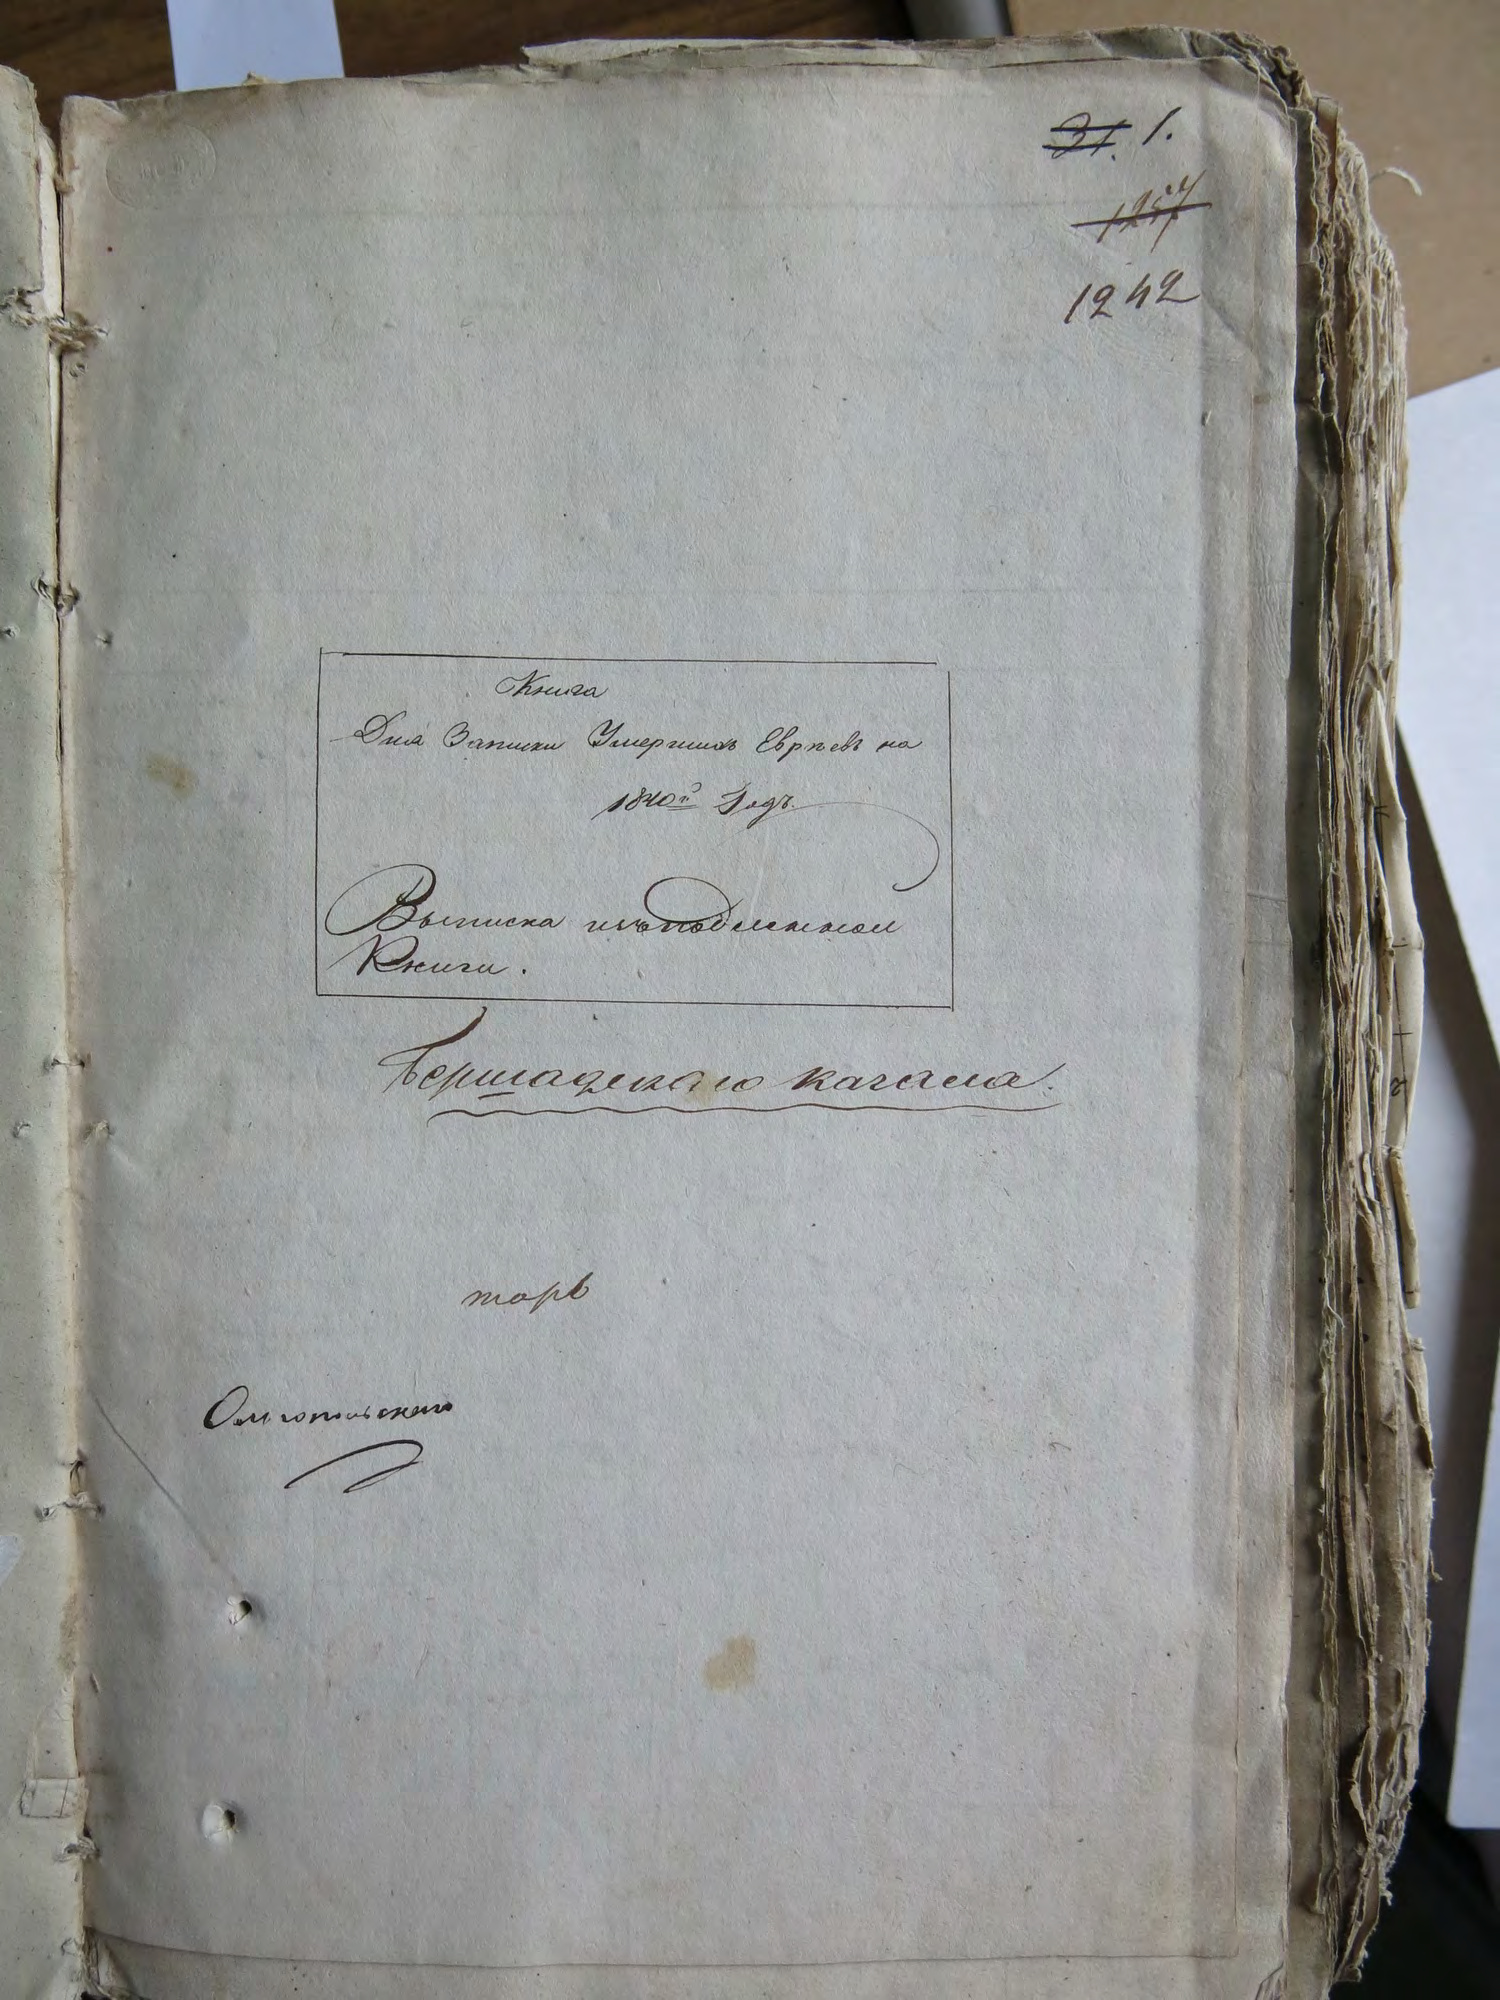 31. 1.
1257
1242
Книга
Для Записки Умершихъ Евреевъ на
1840й Годъ.
Выписка изъ подлинной
Книги.
Бершадскаго кагала.